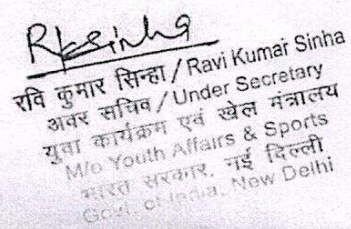 RKSinha
रवि कुमार सिन्हा / Ravi Kumar Sinha
अवर सचिव / Under Secretary
युवा कार्यक्रम एवं खेल मंत्रालय
M/o Youth Affairs & Sports
भारत सरकार, नई दिल्ली
Govt. of India, New Delhi